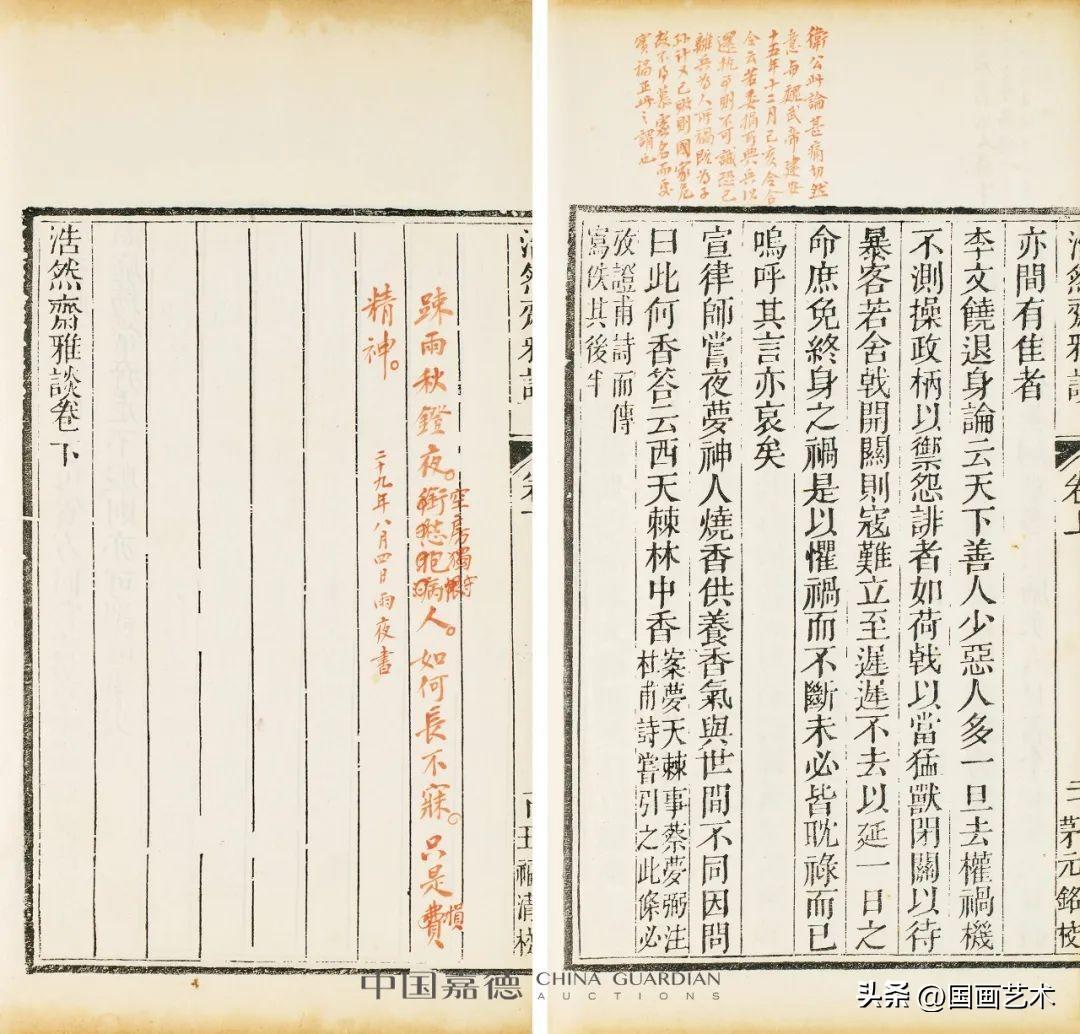 衛公此論甚痛切然
意与魏武帝建安
十五年十二月己亥令合
令云若委捐所典兵以
還執事則不可誠恐己
離兵為人所禍既為子
孫計又己敗則國家危
故不得慕虛名而處
實禍正此之謂也
浩然齋雅談 卷上 二 茅元銘校
亦間有佳者
李文饒退身論云天下善人少惡人多一旦去權禍機
不測操政柄以禦怨誹者如荷戟以當猛獸閉關以待
暴客若舍戟開關則寇難立至遲遲不去以延一日之
命庶免終身之禍是以懼禍而不斷未必皆耽祿而已
嗚呼其言亦哀矣
宣律師嘗夜夢神人燒香供養香氣與世間不同因問
曰此何香答云西天棘林中香
案夢天棘事蔡夢弼注
杜甫詩嘗引之此條必
攷證甫詩而傳
寫佚其後半
浩然齋雅談
福清校
疎雨秋鐙夜。銜愁抱病人。如何長不寐。只是費
空房獨
損
精神。
二十九年八月四日雨夜書
浩然齋雅談卷下
中国嘉德 CHINA GUARDIAN
AUCTIONS
头条 @国画艺术